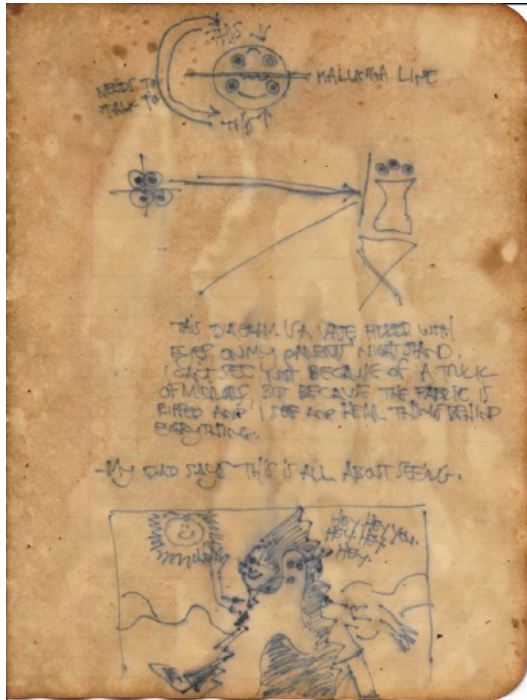 THIS
KALUNGA LINE
NEEDS TO
TALK TO
THIS
THIS DIAGRAM IS A VASE FILLED WITH
EYES ON MY PARENT NIGHTSTAND.
I CAN SEE NOT BECAUSE OF A TRICK
OF MIRRORS, BUT BECAUSE THE FABRIC IS
RIPPED AND I SEE AND HEAR THINGS BEHIND
EVERYTHING.
-MY DAD SAYS THIS IS ALL ABOUT SEEING.
HEY, HEY YOU.
HEY, HEY
HEY.